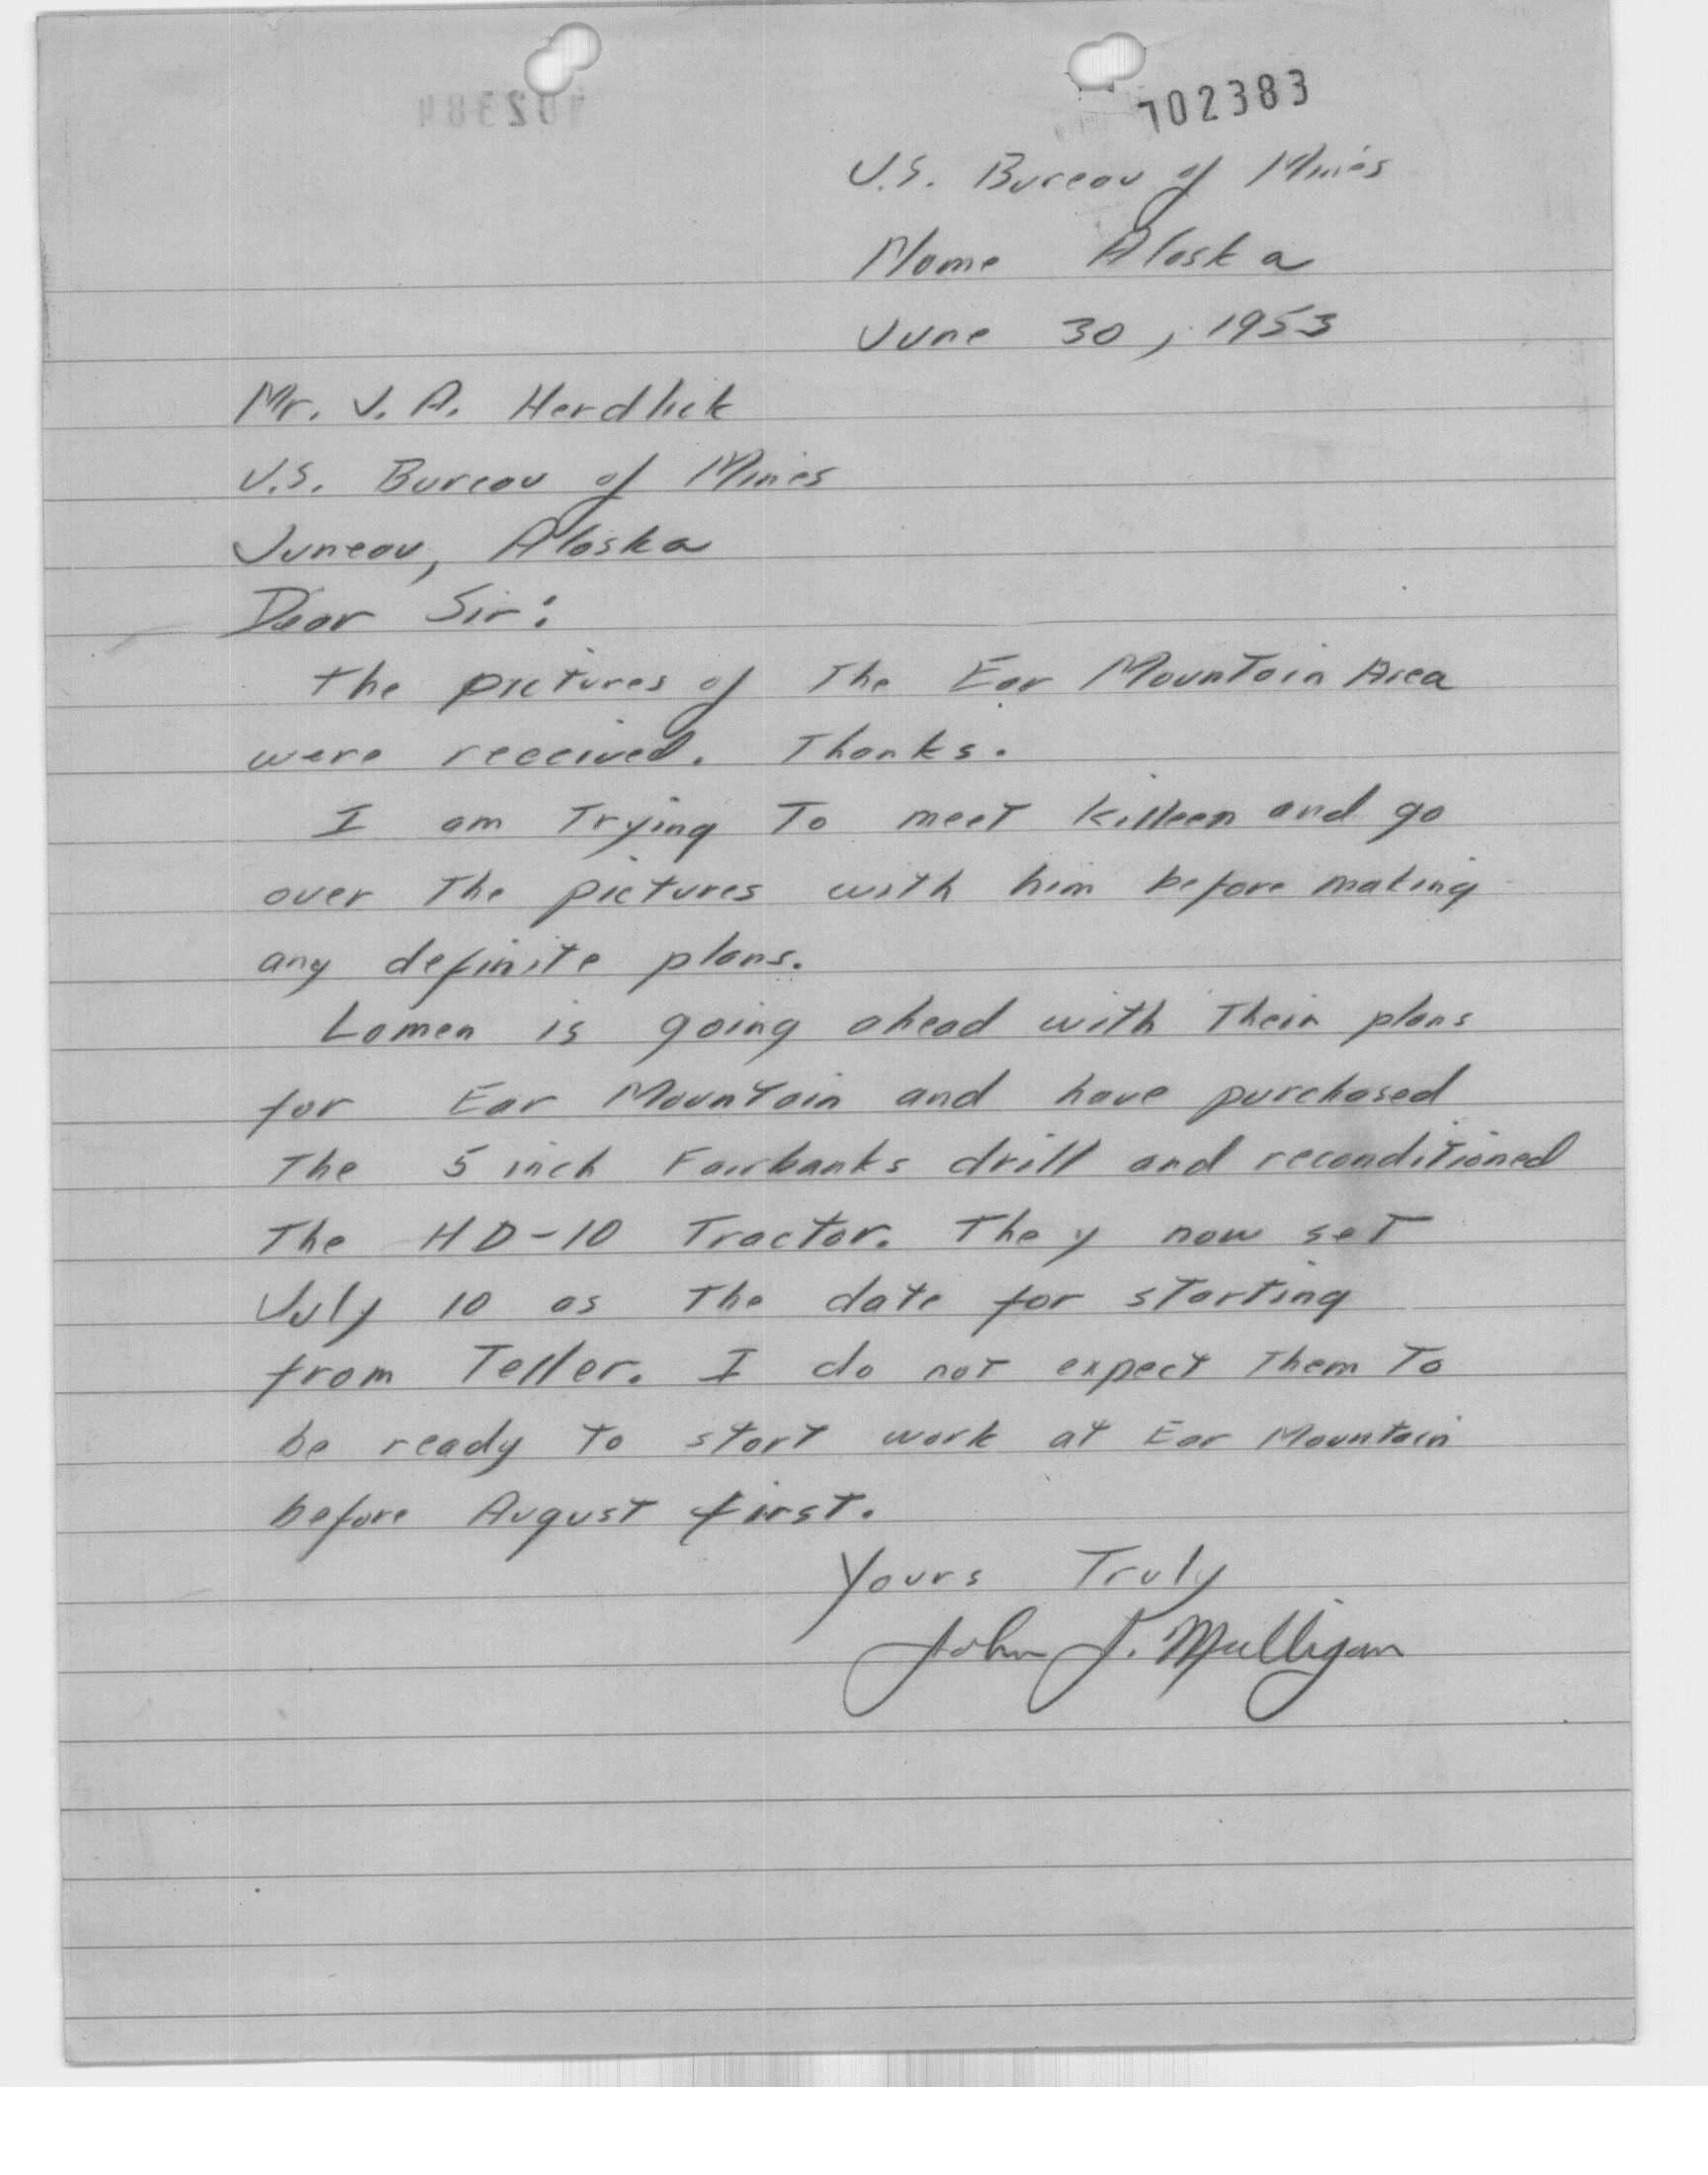 702383
U.S. Bureau of Mines
Nome Alaska
June 30, 1953
Mr. J. A. Herdlick
U.S. Bureau of Mines
Juneau, Alaska
Dear Sir:
The pictures of The Ear Mountain Area
were received. Thanks.
I am Trying To meet Killeen and go
over The pictures with him before making
any definite plans.
Lomen is going ahead with Their plans
for Ear Mountain and have purchased
The 5 inch Fairbanks drill and reconditioned
The HD-10 Tractor. They now set
July 10 as The date for starting
from Teller. I do not expect Them To
be ready to start work at Ear Mountain
before August first.
Yours Truly
John J. Mulligan